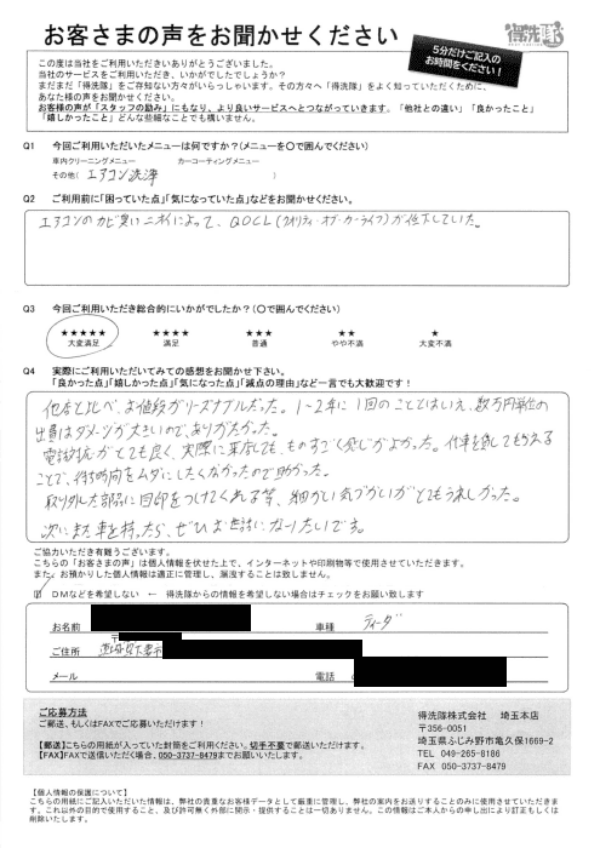 お客さまの声をお聞かせください
得洗隊
5分だけご記入の
お時間をください!
この度は当社をご利用いただきありがとうございました。
当社のサービスをご利用いただき、いかがでしたでしょうか?
まだまだ「得洗隊」をご存知ない方々がいらっしゃいます。その方々へ「得洗隊」をよく知っていただくために、
あなた様の声をお聞かせください。
お客様の声が「スタッフの励み」にもなり、より良いサービスへとつながっていきます。「他社との違い」「良かったこと」
「嬉しかったこと」どんな些細なことでも構いません。
Q1 今回ご利用いただいたメニューは何ですか?(メニューを〇で囲んでください)
車内クリーニングメニュー カーコーティングメニュー
その他( エアコン洗浄 )
Q2 ご利用前に「困っていた点」「気になっていた点」などをお聞かせください。
エアコンのカビ臭いニオイによって、QOCL(クオリティ・オブ・カーライフ)が低下していた。
Q3 今回ご利用いただき総合的にいかがでしたか?(〇で囲んでください)
★★★★★ ★★★★ ★★★ ★★ ★
大変満足 満足 普通 やや不満 大変不満
Q4 実際にご利用いただいてみての感想をお聞かせ下さい。
「良かった点」「嬉しかった点」「気になった点」「減点の理由」など一言でも大歓迎です!
他店と比べ、お値段がリーズナブルだった。1〜2年に1回のことではいえ、数万円単位の
出費はダメージが大きいので、ありがたかった。
電話対応がとても良く、実際に来店しても、ものすごく感じがよかった。仕事を貸してもらえる
ことで、待ち時間をムダにしたくなかったので助かった。
取り外した部品に目印をつけてくれる等、細かい気づかいがとてもうれしかった。
次にまた車を持ったら、ぜひお世話になりたいです。
ご協力いただき有難うございます。
こちらの「お客さまの声」は個人情報を伏せた上で、インターネットや印刷物等で使用させていただきます。
また、お預かりした個人情報は適正に管理し、漏洩することは致しません。
DMなどを希望しない ← 得洗隊からの情報を希望しない場合はチェックをお願い致します
お名前 車種 ティーダ
〒
ご住所
メール 電話
ご応募方法
ご郵送、もしくはFAXでご応募いただけます!
【郵送】こちらの用紙が入っていた封筒をご利用ください。切手不要で郵送いただけます。
【FAX】FAXで送信いただく場合、050-3737-8479までお願いいたします。
得洗隊株式会社 埼玉本店
〒356-0051
埼玉県ふじみ野市亀久保1669-2
TEL 049-265-8186
FAX 050-3737-8479
【個人情報の保護について】
こちらの用紙にご記入いただいた情報は、弊社の貴重なお客様データとして厳重に管理し、弊社の案内をお送りすることのみに使用させていただきま
す。これ以外の目的で使用すること、及び許可無く外部に開示・提供することは一切ありません。この情報はご本人からの申し出により訂正もしくは
削除いたします。